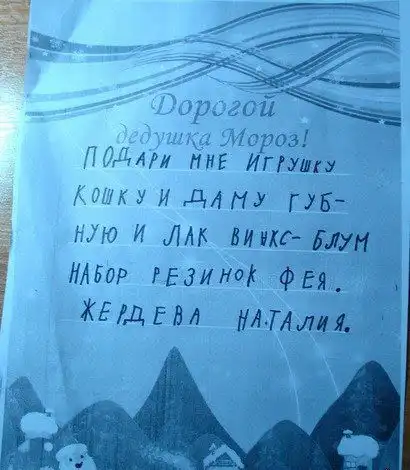 Дорогой
дедушка Мороз!
ПОДАРИ МНЕ ИГРУШКУ
КОШКУ И ДАМУ ГУБ-
НУЮ И ЛАК ВИНКС-БЛУМ
НАБОР РЕЗИНОК ФЕЯ.
ЖЕРДЕВА НАТАЛИЯ.